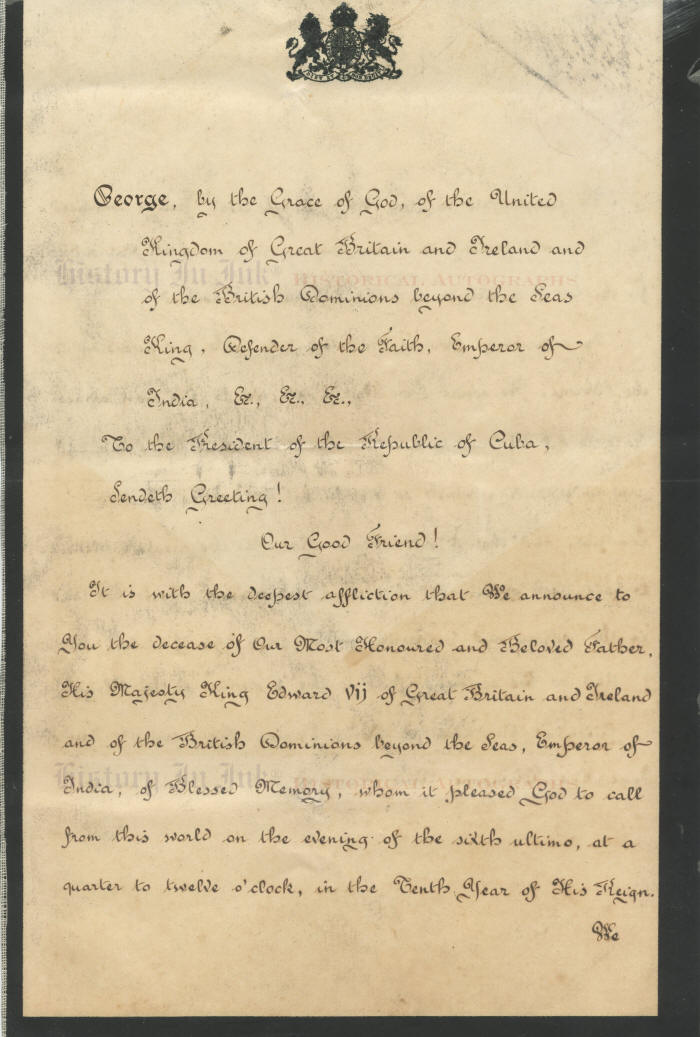 George, by the Grace of God, of the United
Kingdom of Great Britain and Ireland and
of the British Dominions beyond the Seas
King, Defender of the Faith, Emperor of
India, &c., &c., &c.,
To the President of the Republic of Cuba,
Sendeth Greeting!
Our Good Friend!
It is with the deepest affliction that We announce to
You the decease of Our Most Honoured and Beloved Father,
His Majesty King Edward Vij of Great Britain and Ireland
and of the British Dominions beyond the Seas, Emperor of
India, of Blessed Memory, whom it pleased God to call
from this world on the evening of the sixth ultimo, at a
quarter to twelve o'clock, in the Tenth Year of His Reign.
We
History In Ink Historical Autographs
History In Ink Historical Autographs